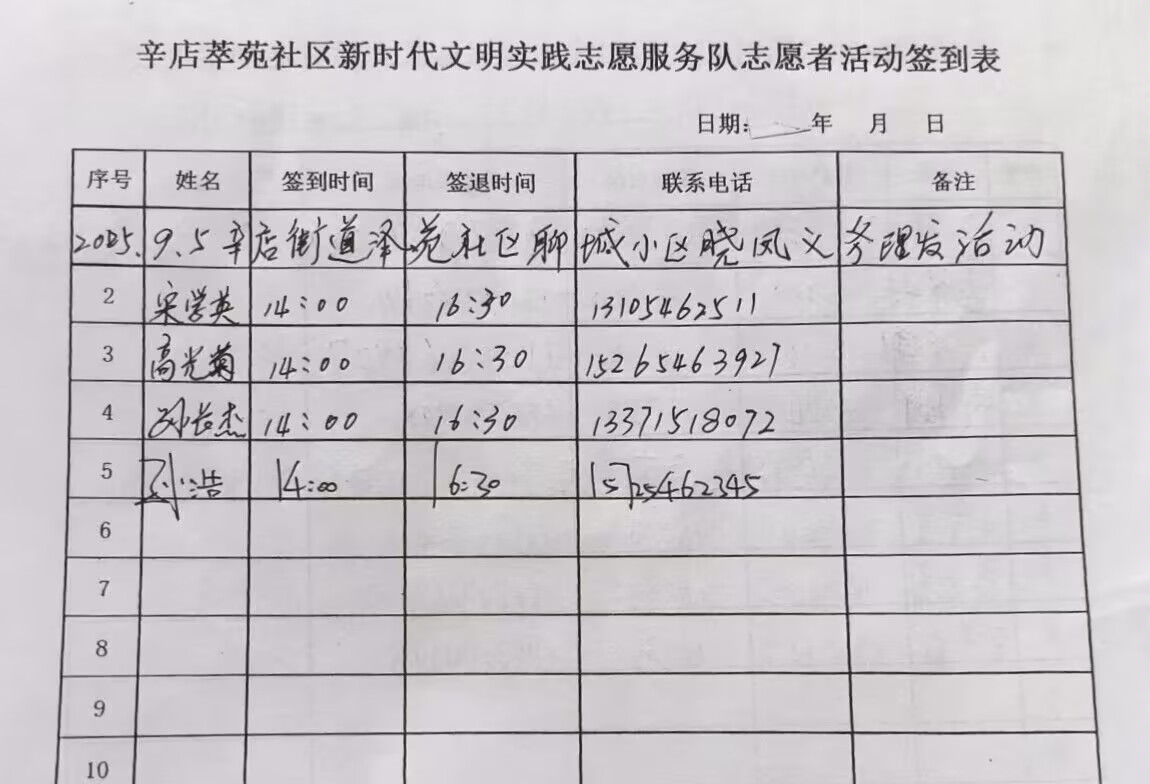 辛店萃苑社区新时代文明实践志愿服务队志愿者活动签到表
日期: 年 月 日
序号 姓名 签到时间 签退时间 联系电话 备注
2025.9.5辛店街道泽苑社区聊城小区晓凤义务理发活动
2 宋学英 14:00 16:30 13105462511
3 高光菊 14:00 16:30 15265463927
4 孙长杰 14:00 16:30 13371518072
5 孙浩 14:00 16:30 15725462345
6
7
8
9
10